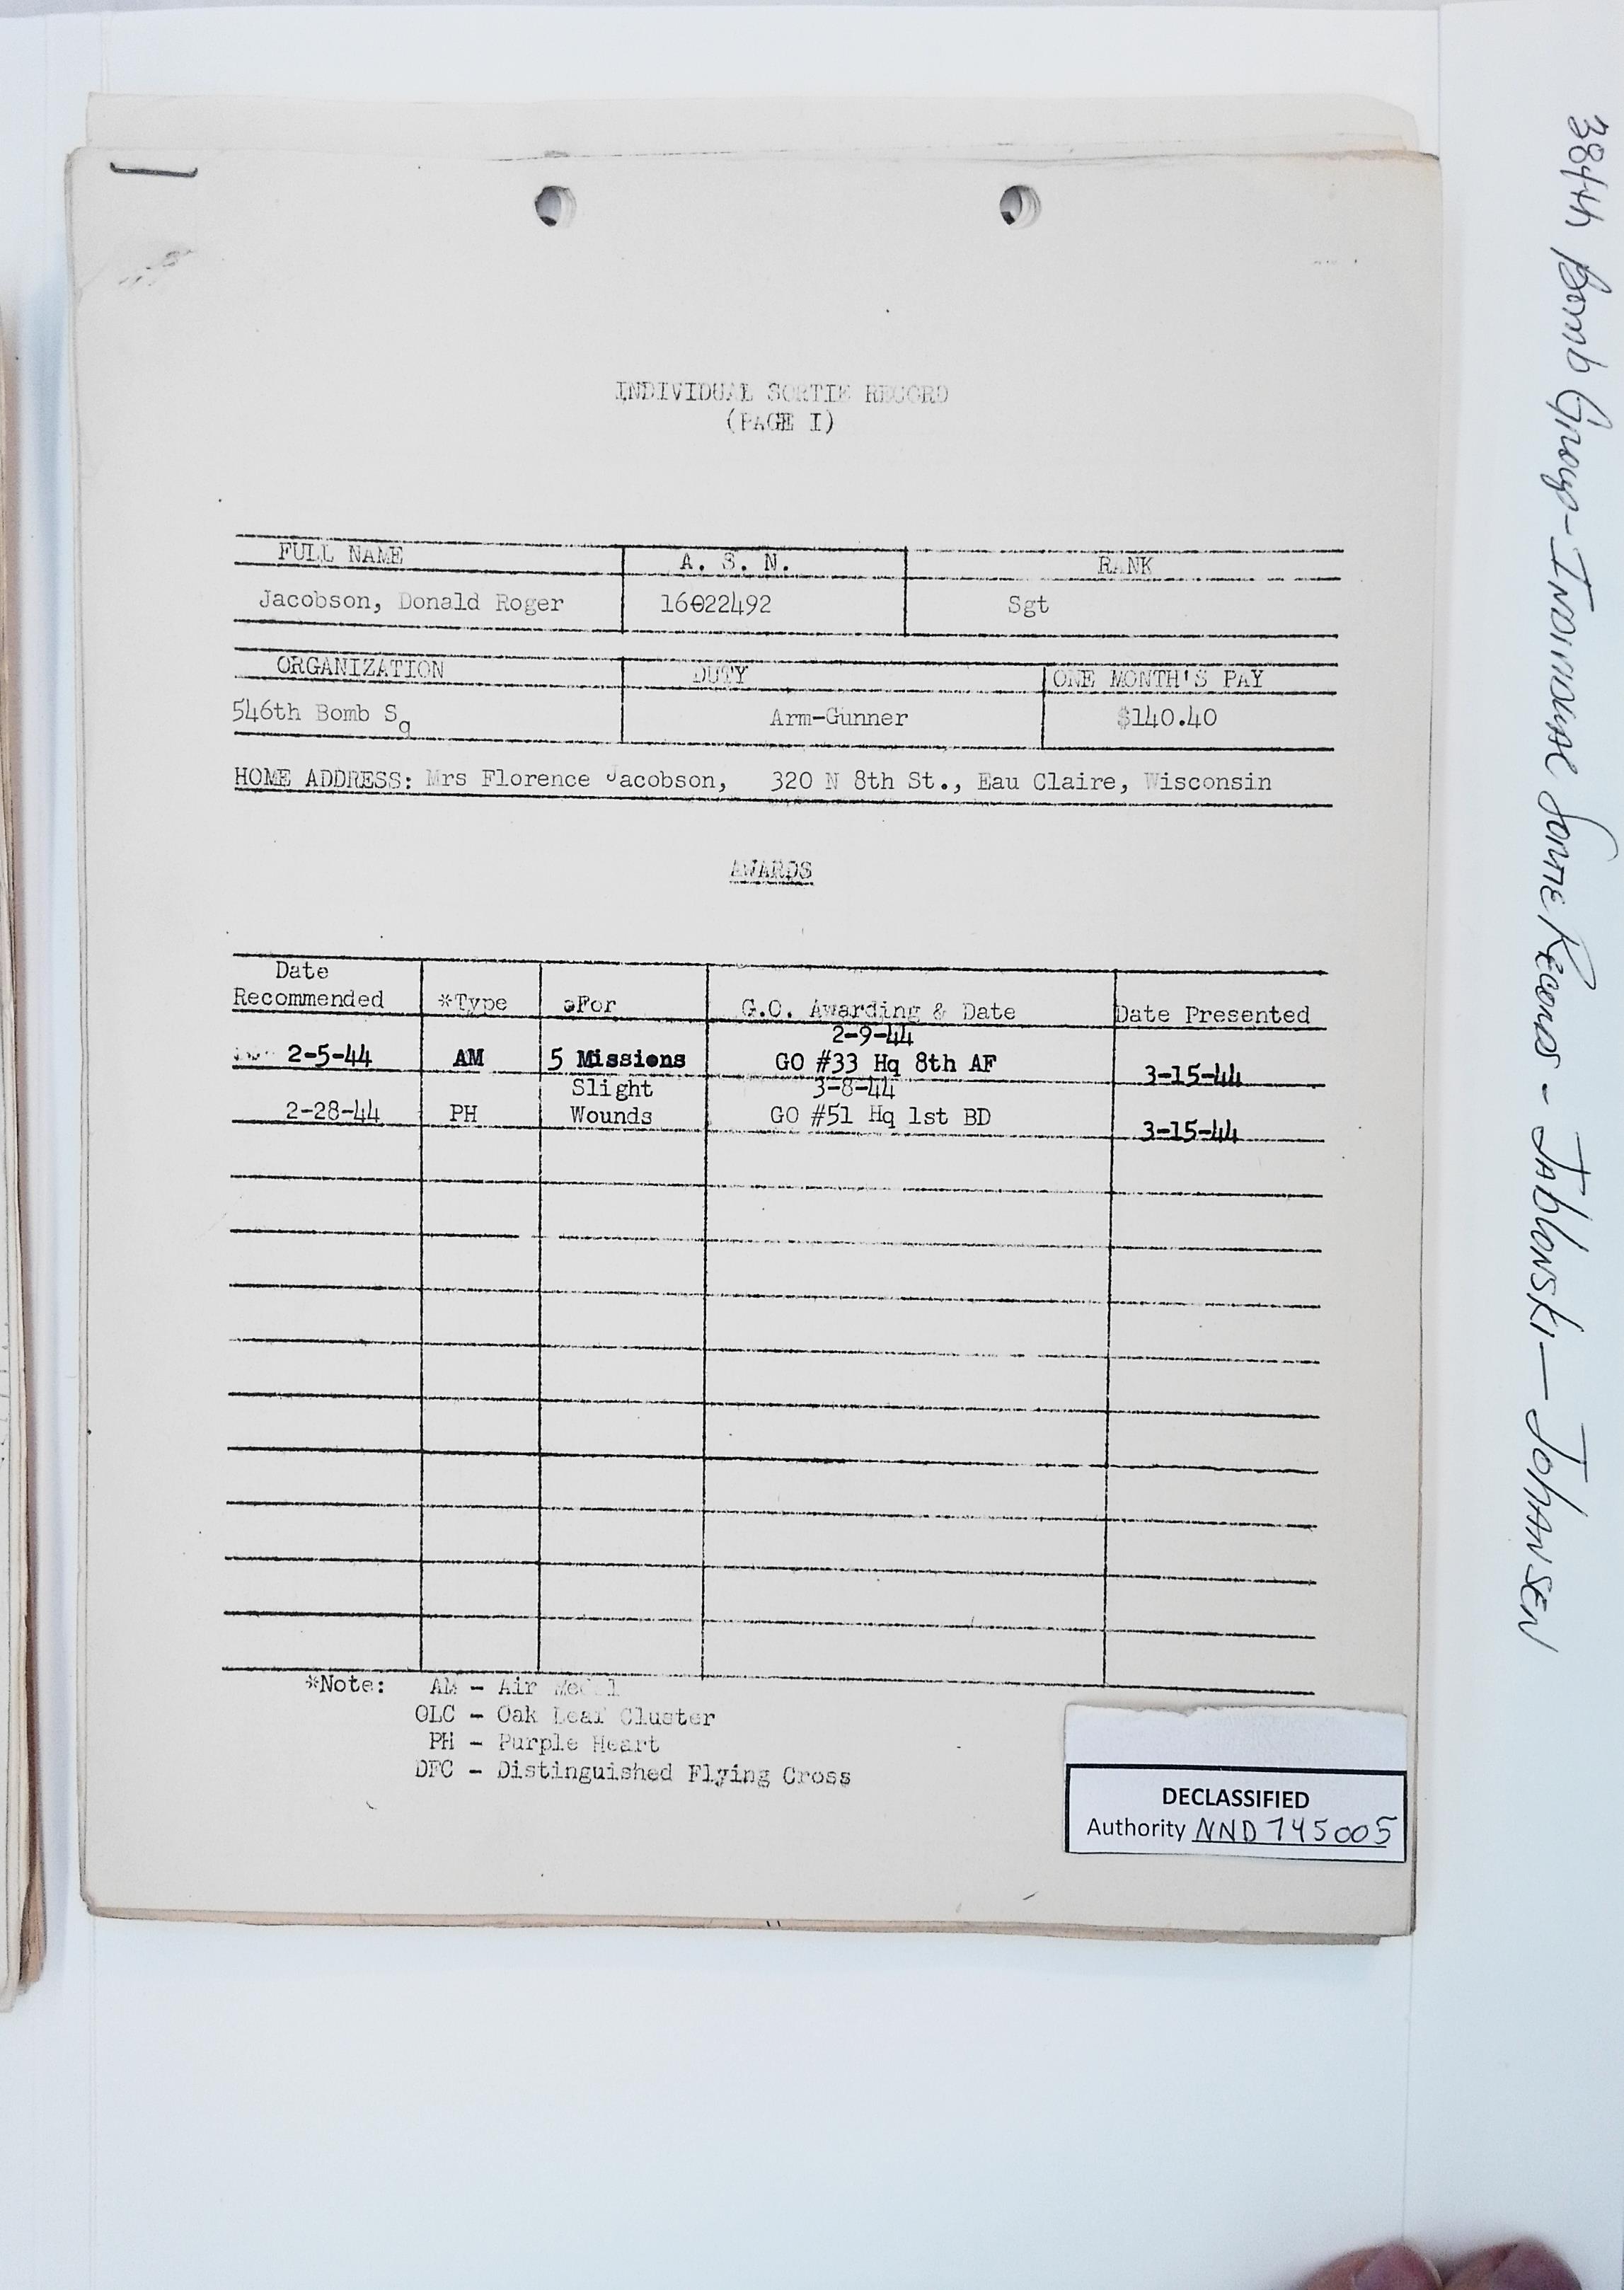 INDIVIDUAL SORTIE RECORD
(PAGE I)
FULL NAME A. S. N. RANK
Jacobson, Donald Roger 16022492 Sgt
ORGANIZATION DUTY ONE MONTH'S PAY
546th Bomb Sq Arm-Gunner $140.40
HOME ADDRESS: Mrs Florence Jacobson, 320 N 8th St., Eau Claire, Wisconsin
AWARDS
Date
Recommended *Type For G.O. Awarding & Date Date Presented
2-9-44
2-5-44 AM 5 Missions GO #33 Hq 8th AF 3-15-44
Slight 3-8-44
2-28-44 PH Wounds GO #51 Hq 1st BD 3-15-44
*Note: AM - Air Medal
OLC - Oak Leaf Cluster
PH - Purple Heart
DFC - Distinguished Flying Cross
DECLASSIFIED
Authority NND 745005
384th Bomb Group - Individual Sortie Records - Jablonski - Johansen